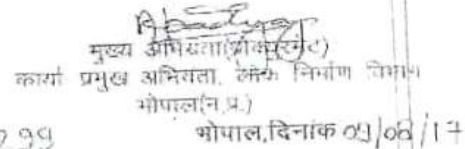 मुख्य अभियंता(प्रोक्यूरमेंट)
कार्या प्रमुख अभियंता, लोक निर्माण विभाग
भोपाल(म.प्र.)
99 भोपाल,दिनांक 09/08/17